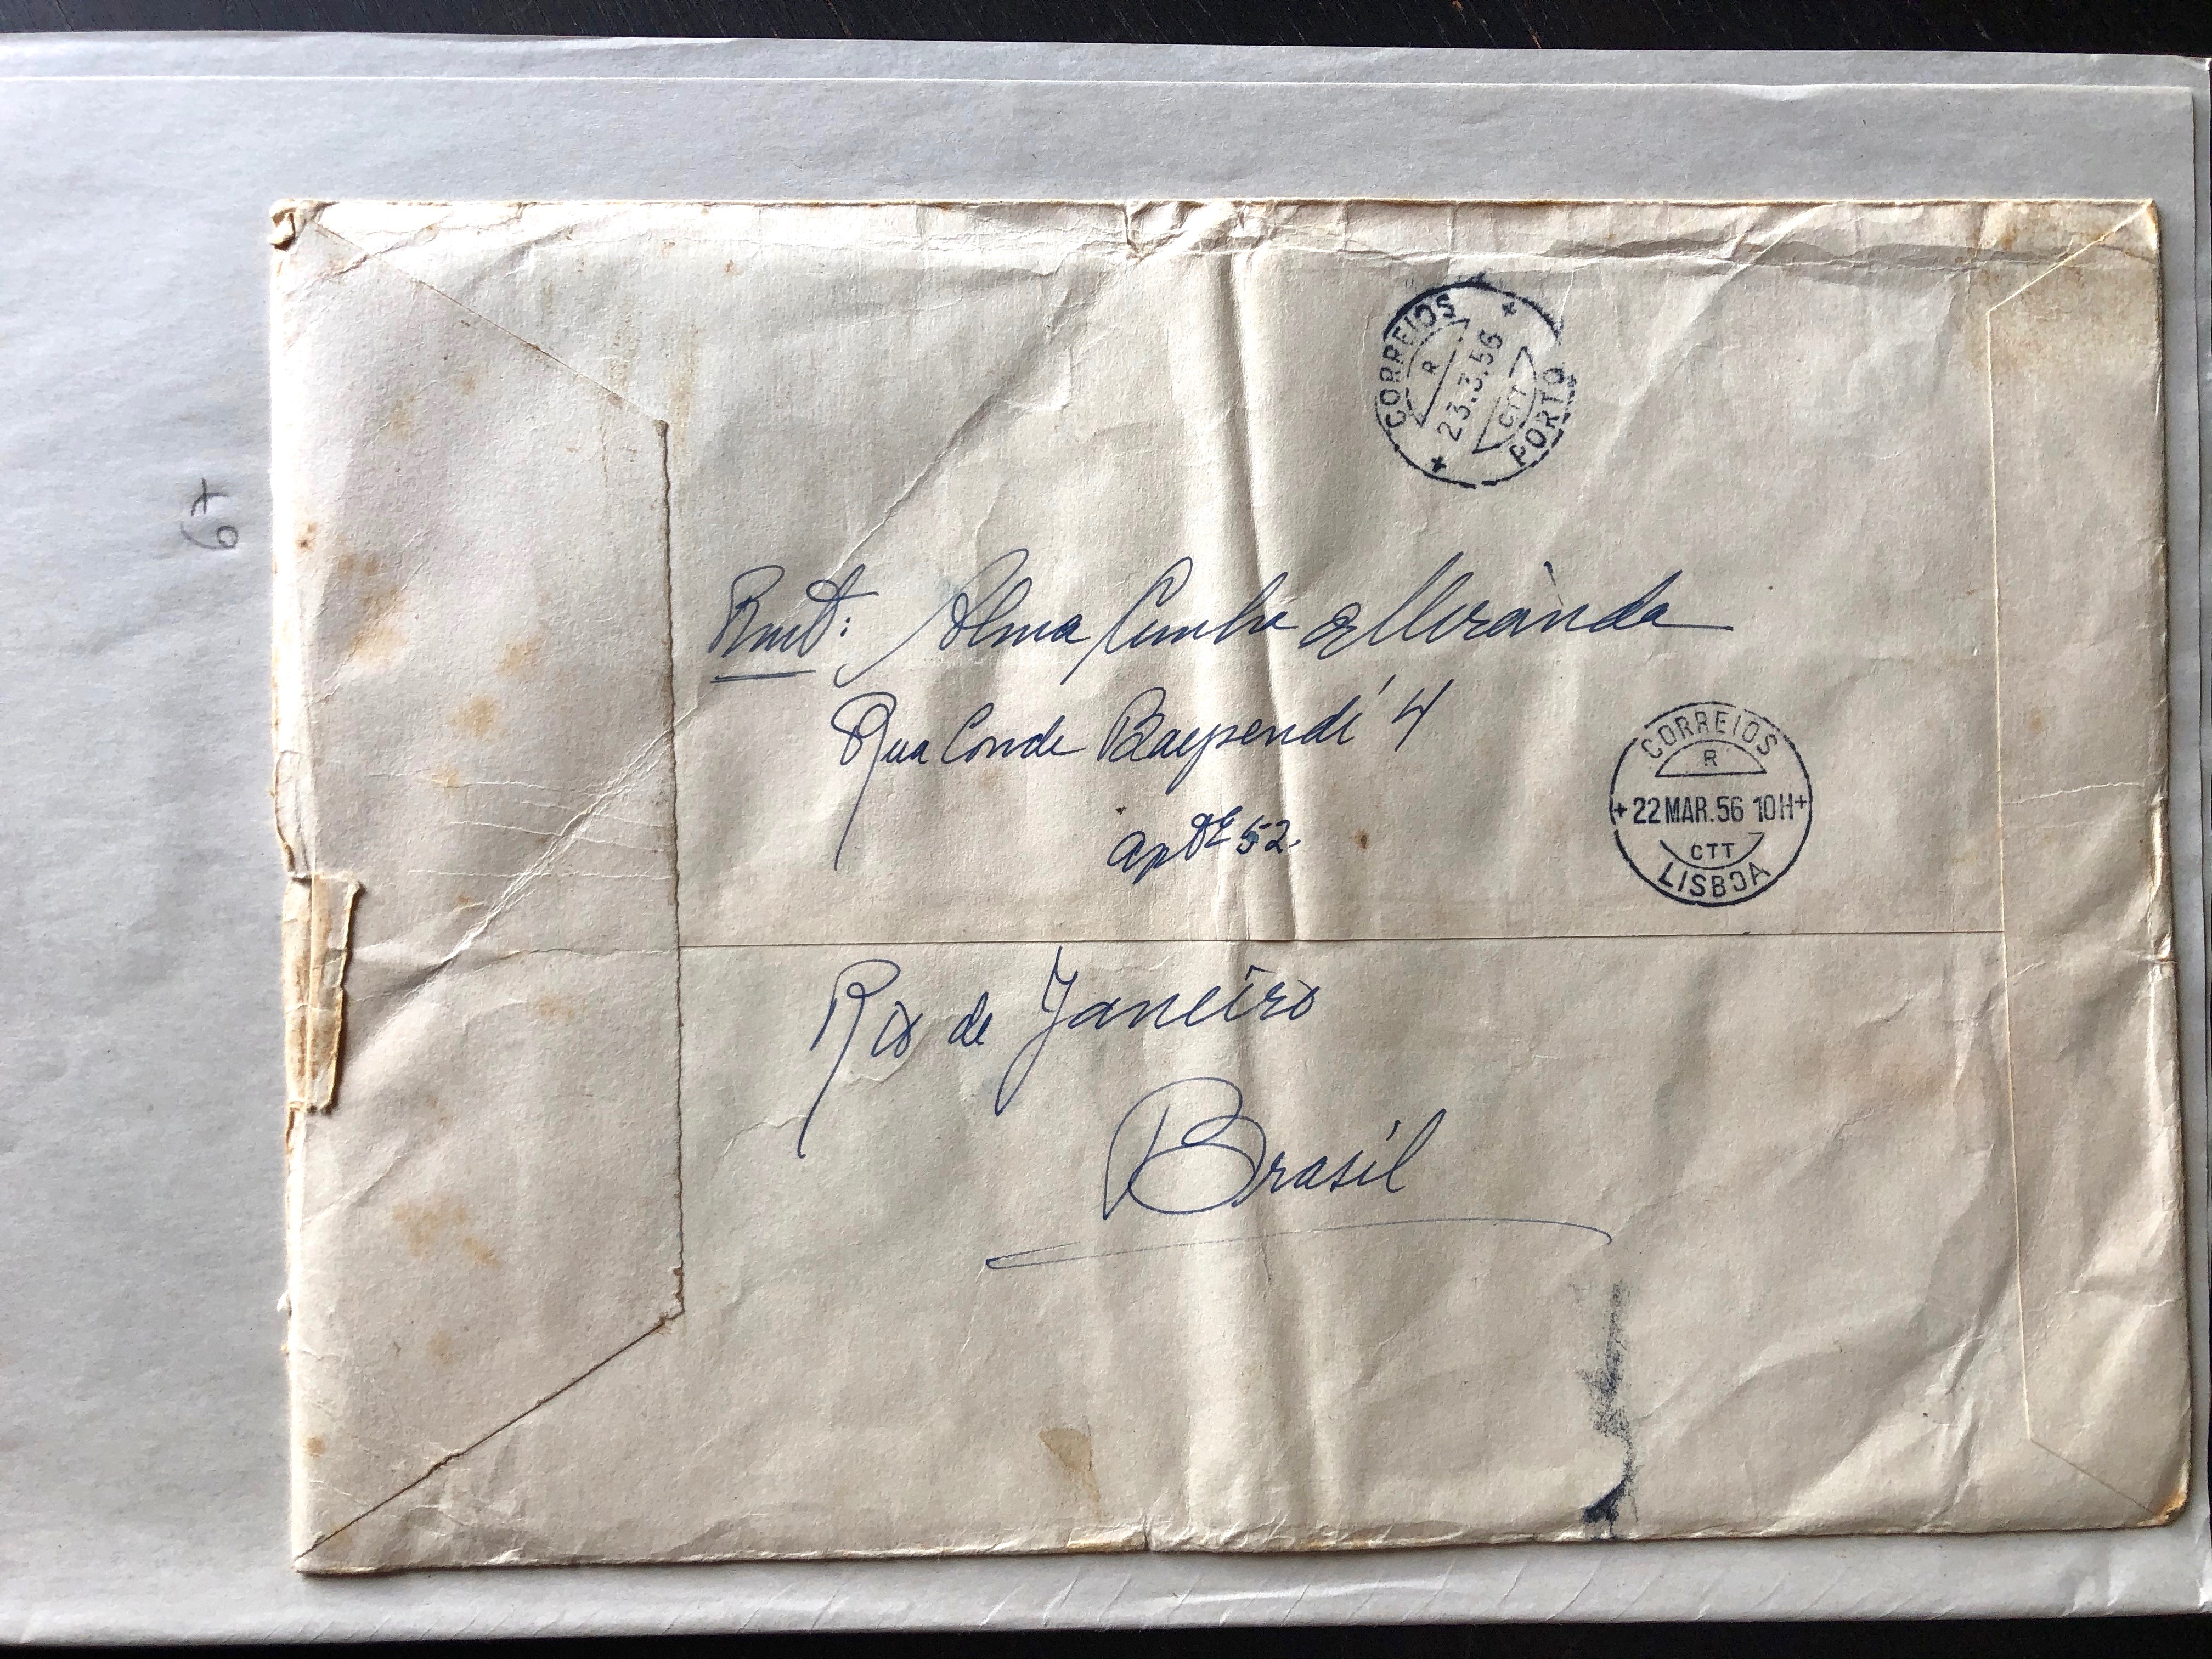 CORREIOS
R
23.3.56
CTT
PORTO
Rmt: Alma Cunha e Miranda
Rua Conde Baependí 4
CORREIOS
R
22 MAR.56 10H
CTT
LISBOA
aptº 52.
Rio de Janeiro
Brasil
67